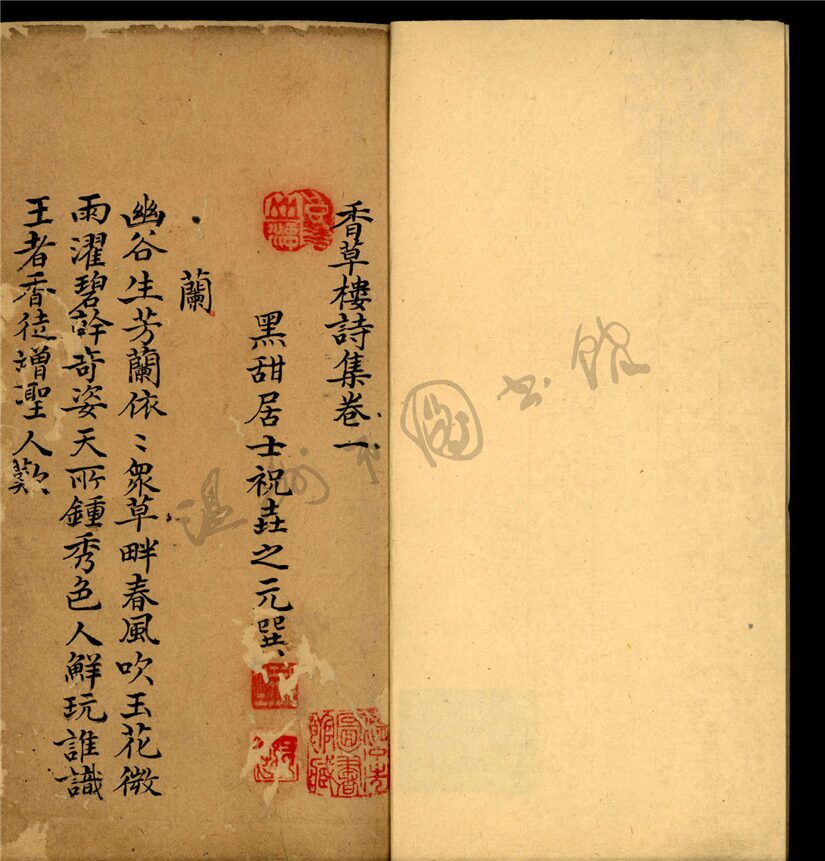 香草樓詩集卷一
黑甜居士祝垚之元巽
蘭
幽谷生芳蘭依〻衆草畔春風吹玉花微
雨濯碧幹奇姿天所鍾秀色人鮮玩誰識
王者香徒增聖人歎
溫州市圖書館
圖書
館藏